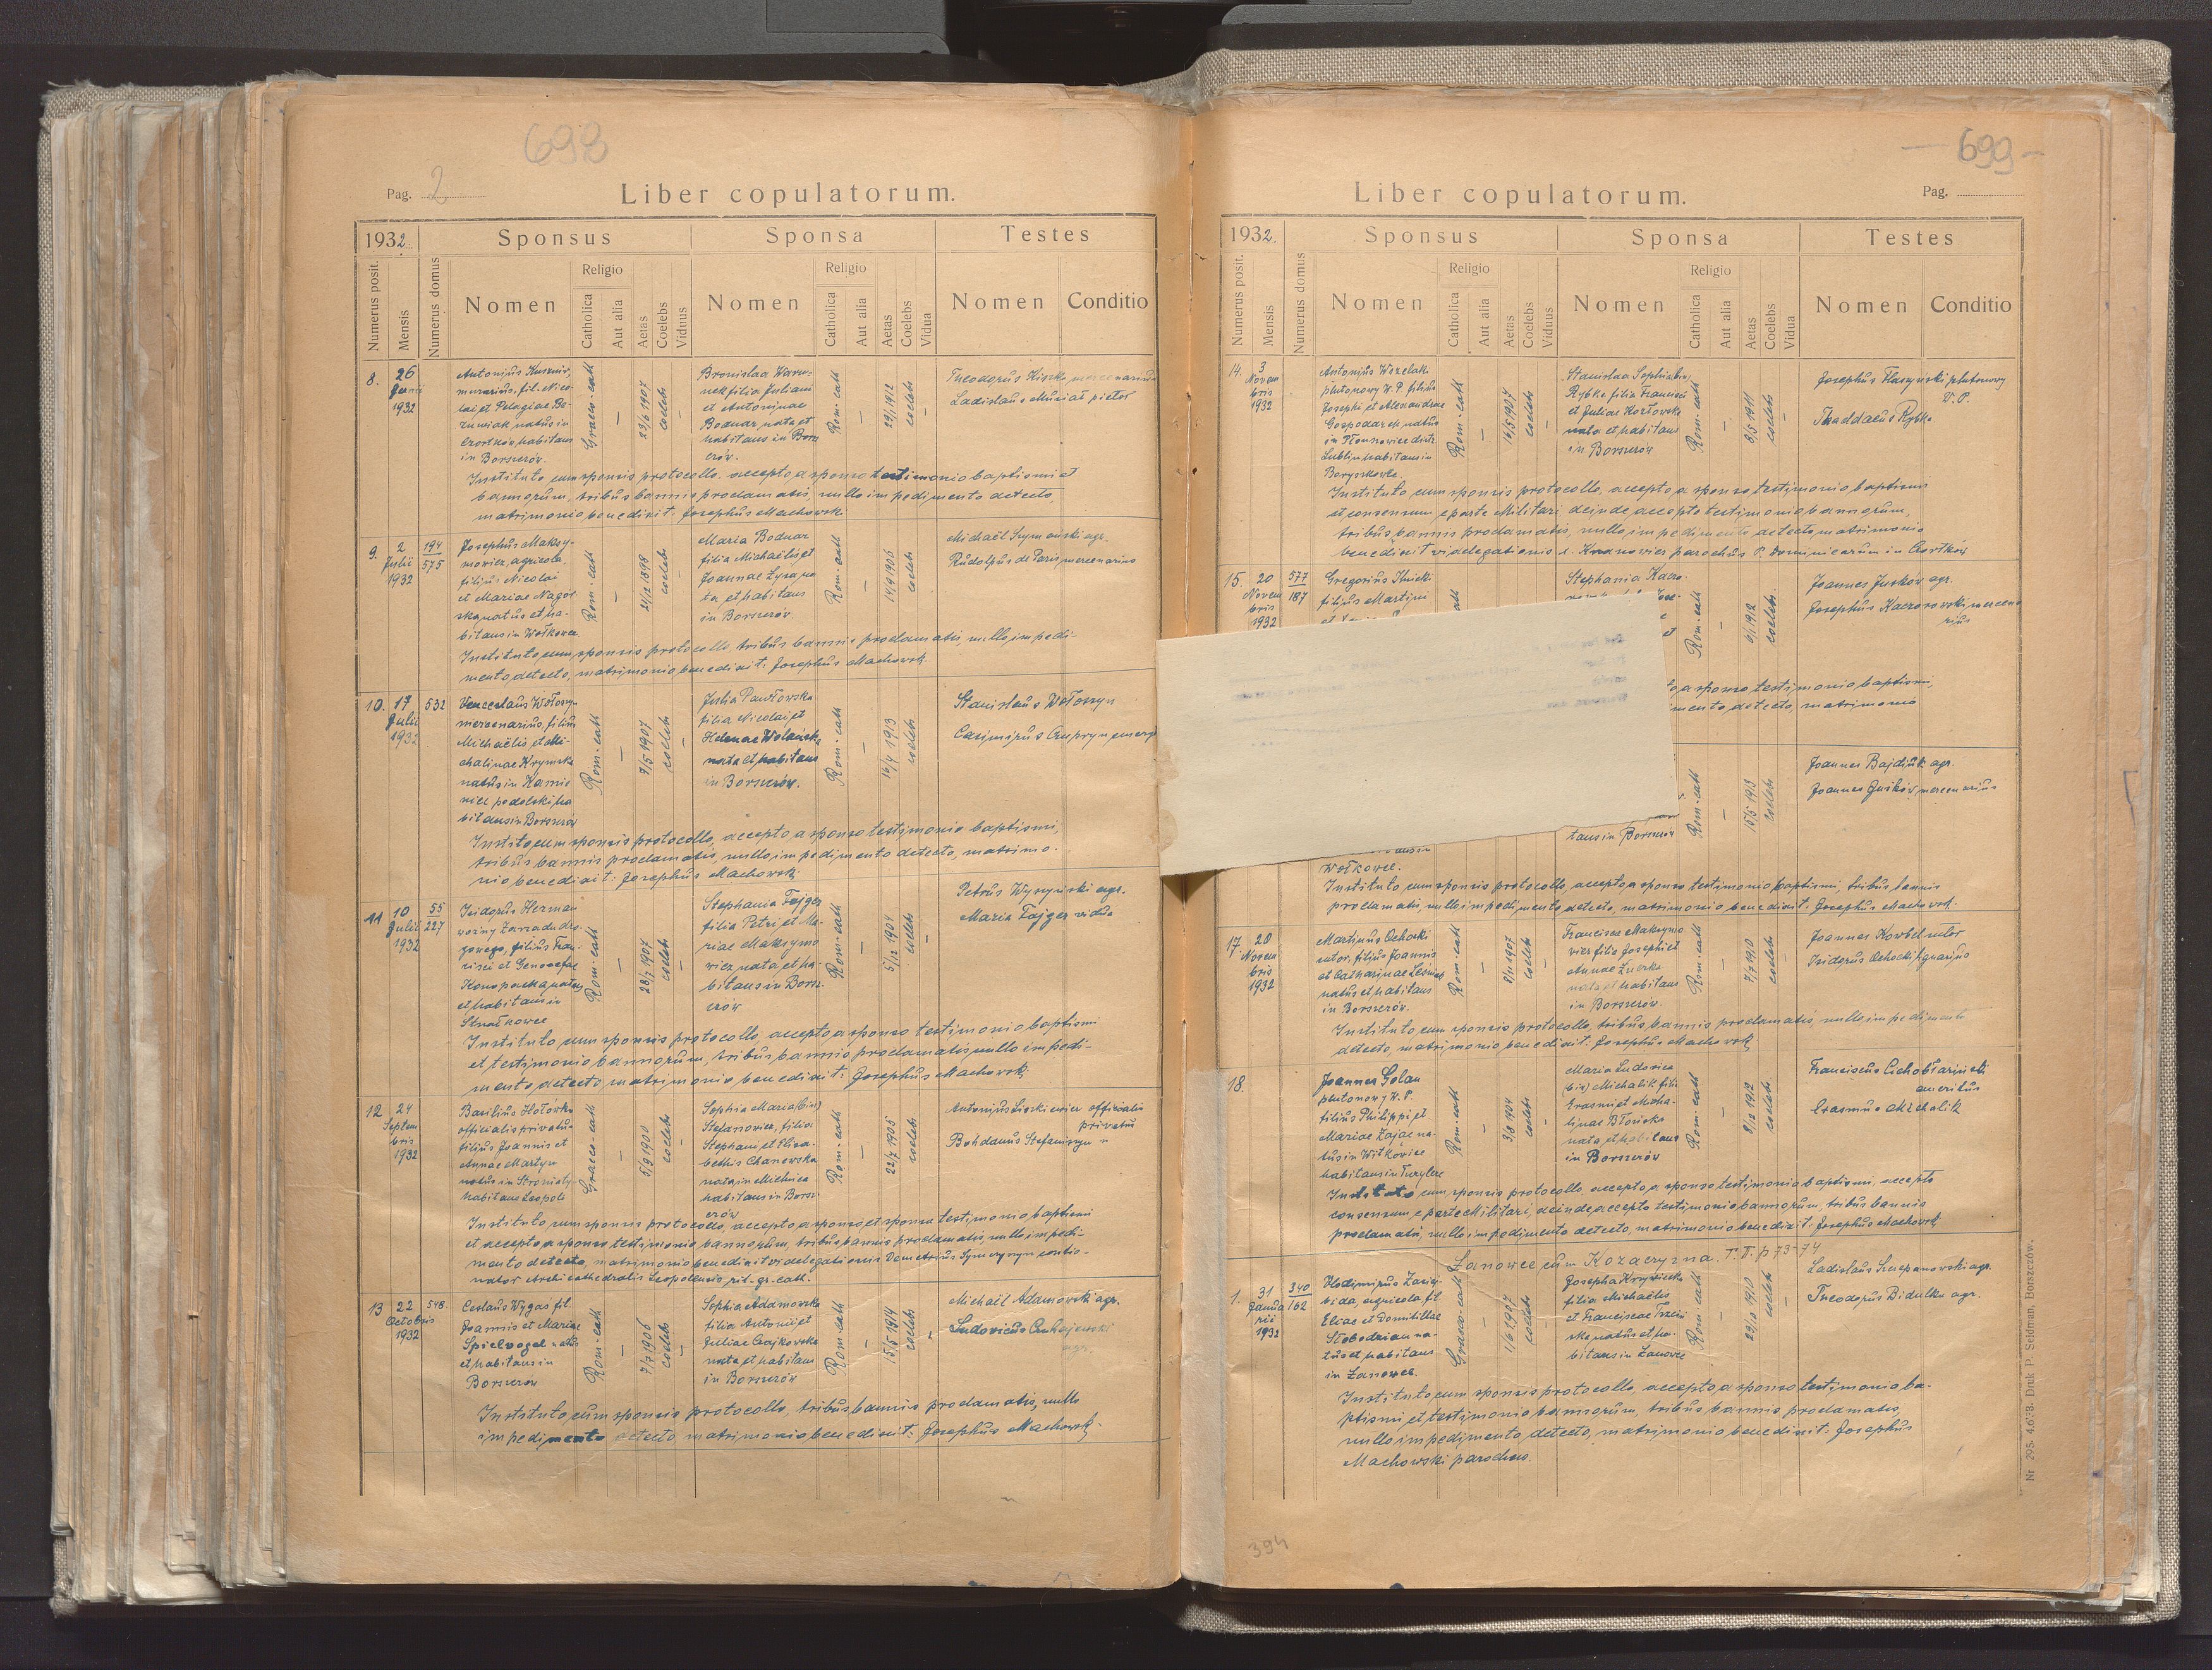 698
Pag. 2
Liber copulatorum.
1932
Sponsus
Sponsa
Testes
Numerus posit.
Mensis
Numerus domus
Nomen
Religio
Catholica
Aut alia
Aetas
Coelebs
Viduus
Nomen
Religio
Catholica
Aut alia
Aetas
Coelebs
Vidua
Nomen
Conditio
8.
26
Junii
1932
Antonius
murarius, fil. Nico-
lai et Pelagiae Bo-
natus in
Czortków habitans
in Borszczów.
Graeco-cath
23/6 1907
coelebs
Bronislaa
filia Juliani
et Antoninae
Bodnar nata et
habitans in Borsz
czów.
Rom-cath
1912
coelebs
Theodorus Kiszka mercenarius
Ladislaus Musiał pictor
Instituto cum sponsis protocollo, accepto a sponso testimonio baptismi et
bannorum, tribus bannis proclamatis, nullo impedimento detecto,
matrimonio benedixit: Josephus Machowski
9.
2
Julii
1932
194
575
Josephus Maksy-
mowicz, agricola,
filius Nicolai
et Mariae Nagór
ska natus et ha-
bitans in Wołkowce
Rom-cath
21/12 1898
coelebs
Maria Bodnar
filia Michaëlis et
Joannae Łysa na
ta et habitans
in Borszczów
Rom-cath
14/9 1906
coelebs
Michaël Szymański agr.
Rudolfus de Paris mercenarius
Instituto cum sponsis protocollo, tribus bannis proclamatis, nullo impedi-
mento detecto, matrimonio benedixit: Josephus Machowski
10.
17
Julii
1932
532
Venceslaus Wołoszyn
mercenarius, filius
Michaëlis et Mi-
chalinae Krymska
natus in Kamie
niec podolski ha
bitans in Borszczów
Rom-cath
7/5 1907
coelebs
Julia Pawłowska
filia Nicolai et
Helenae Wolańska
nata et habitans
in Borszczów.
Rom-cath
16/4 1913
coelebs
Stanislaus Wołoszyn
Casimirus
Instituto cum sponsis protocollo, accepto a sponso testimonio baptismi,
tribus bannis proclamatis, nullo impedimento detecto, matrimo-
nio benedixit: Josephus Machowski
11
10
Julii
1932
55
227
Isidorus Herman
woźny Zarządu dro-
gowego, filius Fran-
cisci et Genovefae
Konopacka natus
et habitans in
Strzałkowce
Rom-cath
23/7 1907
coelebs
Stephania Fajger
filia Petri et Ma-
riae Maksymo
wicz nata et ha-
bitans in Borsz.
czów
Rom-cath
5/12 1904
coelebs
Petrus Wyszyński agr.
Maria Fajger vidua
Instituto cum sponsis protocollo, accepto a sponso testimonio baptismi
et testimonio bannorum, tribus bannis proclamatis nullo impedi-
mento detecto, matrimonio benedixit: Josephus Machowski
12
24
Septem
bris
1932
Basilius Hołówka
officialis privatus
filius Joannis et
Annae Martyn
natus in
habitans Leopoli
Graeco-cath
5/9 1900
coelebs
Sophia Maria (bin)
Stefanowicz, filia
Stephani et Elisa-
bethis Chanowska
nata in Mielnica
habitans in Borsz
czów
Rom-cath
22/7 1905
coelebs
Antonius officialis
privatus
Bohdanus Stefaniszyn "
Instituto cum sponsis protocollo, accepto a sponso et sponsa testimonio baptismi
et accepto a sponso testimonio bannorum, tribus bannis proclamatis, nullo impedi-
mento detecto, matrimonio benedixit vi delegationis Demetrius
nator Archicathedralis Leopoliensis rit. gr. cath.
13
22
Octobris
1932
548
Ceslaus Wygas fil
Joannis et Mariae
Spielvogel natus
et habitans in
Borszczów
Rom-cath
7/7 1906
coelebs
Sophia Adamowska
filia Antonii et
Juliae Czajkowska
nata et habitans
in Borszczów
Rom-cath
15/5 1914
coelebs
Michaël Adamowski agr.
Ludovicus
agr.
Instituto cum sponsis protocollo, tribus bannis proclamatis, nullo
impedimento detecto, matrimonio benedixit: Josephus Machowski
- 699 -
Liber copulatorum.
Pag.
1932.
Sponsus
Sponsa
Testes
Numerus posit.
Mensis
Numerus domus
Nomen
Religio
Catholica
Aut alia
Aetas
Coelebs
Viduus
Nomen
Religio
Catholica
Aut alia
Aetas
Coelebs
Vidua
Nomen
Conditio
14.
3
Novem
bris
1932
Antonius Wszelaki
plutonowy W.P. filius
Josephi et Alexandrae
Gospodarek natus
in distr.
Lublin habitans in
Boryszkowce
Rom-cath
16/5 1907
coelebs
Stanislaa Sophia (bin)
Rybka filia Francisci
et Juliae Kozłowska
nata et habitans
in Borszczów
Rom-cath
8/5 1911
coelebs
Josephus plutonowy
W.P.
Thaddaeus Rybka
Instituto cum sponsis protocollo, accepto a sponso testimonio baptismi
et consensum e parte Militari, deinde accepto testimonio bannorum,
tribus bannis proclamatis, nullo impedimento detecto, matrimonio
benedixit vi delegationis parochus P. Dominicanum in Czortków
15.
20
Novem
bris
1932
577
187
Gregorius Ilnicki
filius Martini
Stephania
Rom-cath
6/1 1912
coelebs
Joannes Juśków agr.
Josephus Kaczorowski mercena
rius
a sponso testimonio baptismi,
mento detecto, matrimonio
tans in Borszczów
Rom-cath
15/5 1913
coelebs
Joannes Bajdiuk agr.
Joannes Juśków, mercenarius
Wołkowce.
Instituto cum sponsis protocollo, accepto a sponso testimonio baptismi, tribus bannis
proclamatis, nullo impedimento detecto, matrimonio benedixit: Josephus Machowski
17.
20
Novem
bris
1932
Martinus Ochocki
sutor, filius Joannis
et Catharinae Leśniak
natus et habitans
in Borszczów.
Rom-cath
8/11 1907
coelebs
Francisca Maksymo
wicz filia Josephi et
Annae
nata et habitans
in Borszczów
Rom-cath
7/7 1910
coelebs
Joannes Korbel sutor
Isidorus Ochocki lignarius
Instituto cum sponsis protocollo, tribus bannis proclamatis, nullo impedimento
detecto, matrimonio benedixit: Josephus Machowski
18.
Joannes Golan
plutonowy W.P.
filius Philippi et
Mariae Zając na-
tus in Witkowice
habitans in Turylcze
Rom-cath
3/8 1904
coelebs
Maria Ludovica
(bin) Michalik filia
Erasmi et Micha-
linae Błońska
nata et habitans
in Borszczów
Rom-cath
8/12 1912
coelebs
Franciscus
emeritus
Erasmus Michalik
Instituto cum sponsis protocollo, accepto a sponso testimonio baptismi, accepto
consensum, e parte Militari, deinde accepto testimonio bannorum, tribus bannis
proclamatis, nullo impedimento detecto, matrimonio benedixit: Josephus Machowski
Łanowce cum Kozaczyzna. T. II. p 73-74
1.
31
Janua
rii
1932
340
162
Vlodimirus
bida, agricola, fil
Eliae et Domitillae
Słobodzian na-
tus et habitans
in Łanowce.
Graeco-cath
1/6 1907
coelebs
Josepha
filia Michaëlis
et Franciscae
nata et ha-
bitans in Łanowce
Rom-cath
23/10 1910
coelebs
Ladislaus Szczepanowski agr.
Theodorus Bidulka agr.
Instituto cum sponsis protocollo, accepto a sponso testimonio ba-
ptismi et testimonio bannorum, tribus bannis proclamatis,
nullo impedimento, detecto, matrimonio benedixit: Josephus
Machowski parochus.
394
Nr 295. Druk P. Seidman, Borszczów.